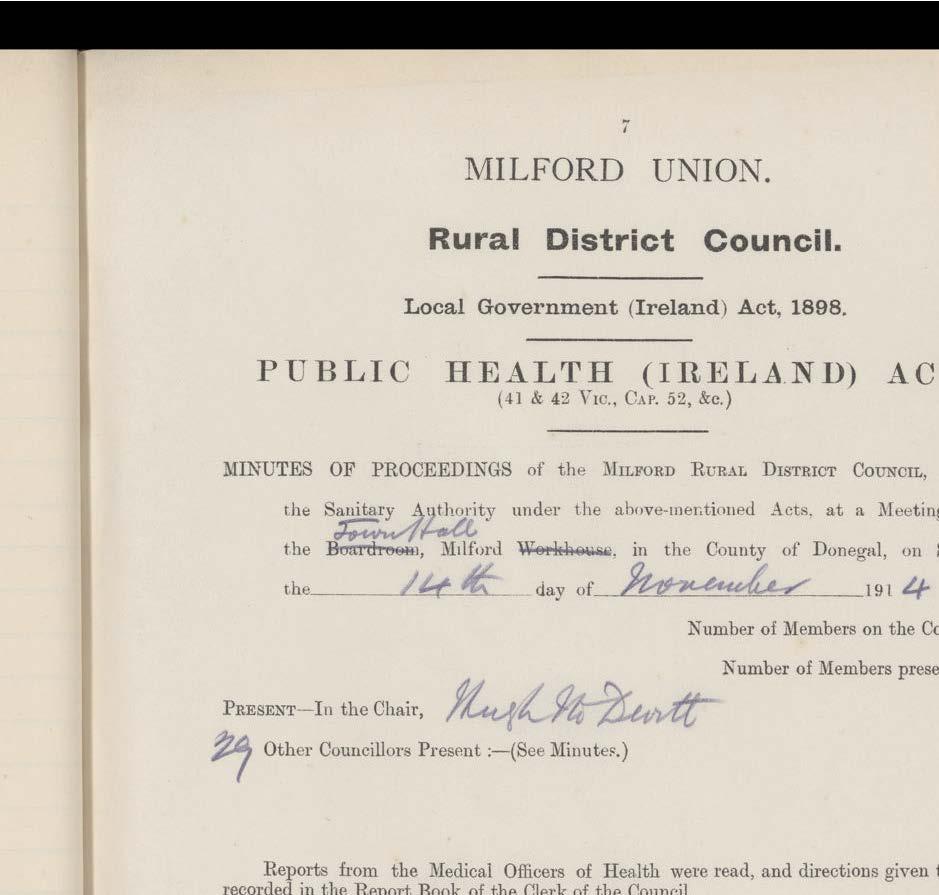 7
MILFORD UNION.
Rural District Council.
Local Government (Ireland) Act, 1898.
PUBLIC HEALTH (IRELAND) AC
(41 & 42 Vic., Cap. 52, &c.)
MINUTES OF PROCEEDINGS of the Milford Rural District Council,
the Sanitary Authority under the above-mentioned Acts, at a Meeting
Town Hall
the Boardroom, Milford Workhouse, in the County of Donegal, on
the 14th day of November 1914
Number of Members on the Co
Number of Members prese
Present—In the Chair, Hugh McDevitt
29 Other Councillors Present :—(See Minutes.)
Reports from the Medical Officers of Health were read, and directions given t
recorded in the Report Book of the Clerk of the Council